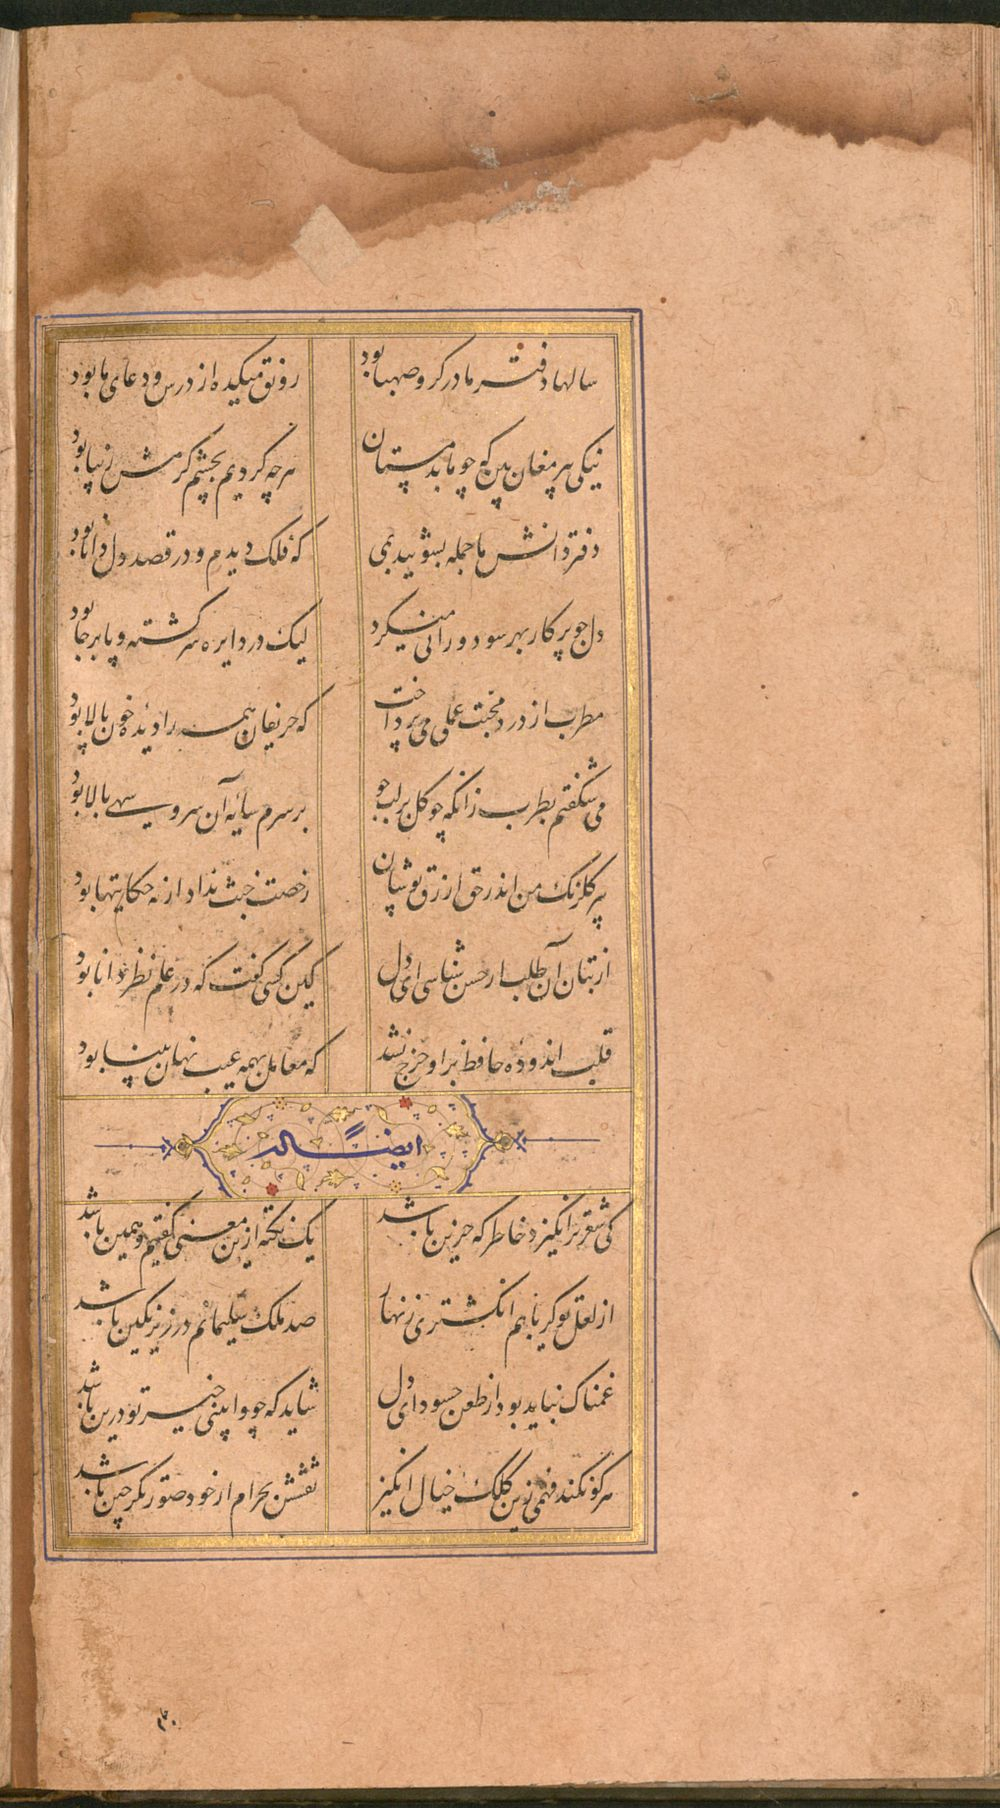 سالها دفتر ما در گرو صهبا بود رونق میکده از درس و دعای ما بود
نیکی پیر مغان بین که چو ما بدمستان هر چه کردیم بچشم کرمش زیبا بود
دفتر دانش ما جمله بشوئید بمی که فلک دیدم و در قصد دل دانا بود
دل چو پرکار بهر سو دورانی میکرد لیک در دایره سرگشته و پا برجا بود
مطرب از درد محبت عملی می پرداخت که حریفان همه را دیده خون پالا بود
می شکفتم بطرب زانکه چو گل بر لب جو بر سرم سایه آن سرو سهی بالا بود
پیر گلرنگ من اندر حق ازرق پوشان رخصت خبث نداد ار نه حکایتها بود
از بتان آن طلب ار حسن شناسی ای دل کین کسی گفت که در علم نظر دانا بود
قلب اندوده حافظ بر او خرج نشد که معامل بهمه عیب نهان بینا بود
ایضاً له
کی شعر تر انگیزد خاطر که حزین باشد یک نکته ازین معنی گفتیم و همین باشد
از لعل تو گر یابم انگشتری زنهار صد ملک سلیمانم در زیر نگین باشد
غمناک نباید بود از طعن حسود ای دل شاید که چو وا بینی خیر تو درین باشد
هر کو نکند فهمی زین کلک خیال انگیز نقشش بحرام ار خود صورتگر چین باشد